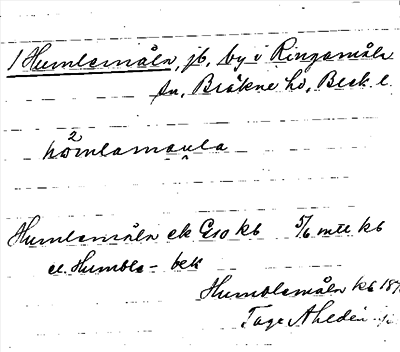 1 Humlamåla, jb, by i Ringamåla
sn, Bräkne hd, Blek. l.
2
hömlamåula
Humlamåla ek Geo kb 5/6 mtl kb
el. Humble- bek
Humblemåla kb 18
Tage Ahldén